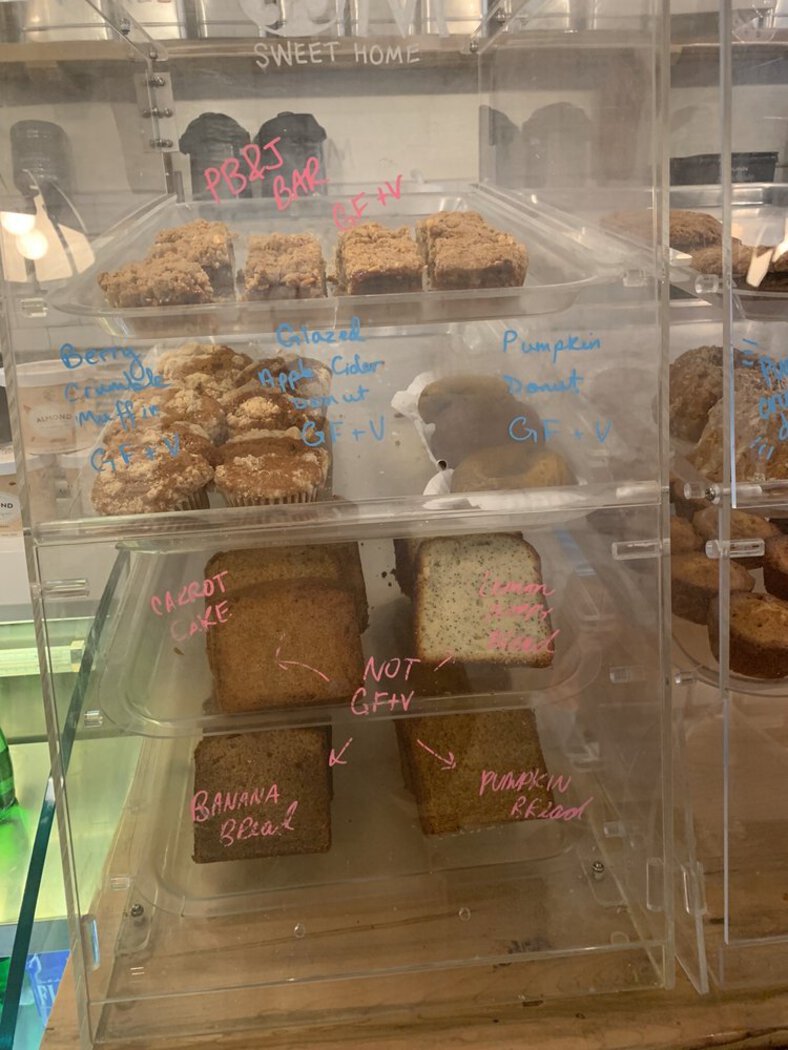 SWEET HOME
PB&J
BAR
GF+V
Berry
Crumble
Muffin
GF+V
Glazed
Apple Cider
Donut
GF+V
Pumpkin
Donut
GF+V
ALMOND
CARROT
CAKE
Lemon
Bread
NOT
GF+V
BANANA
BREad
PUMPKIN
BREad